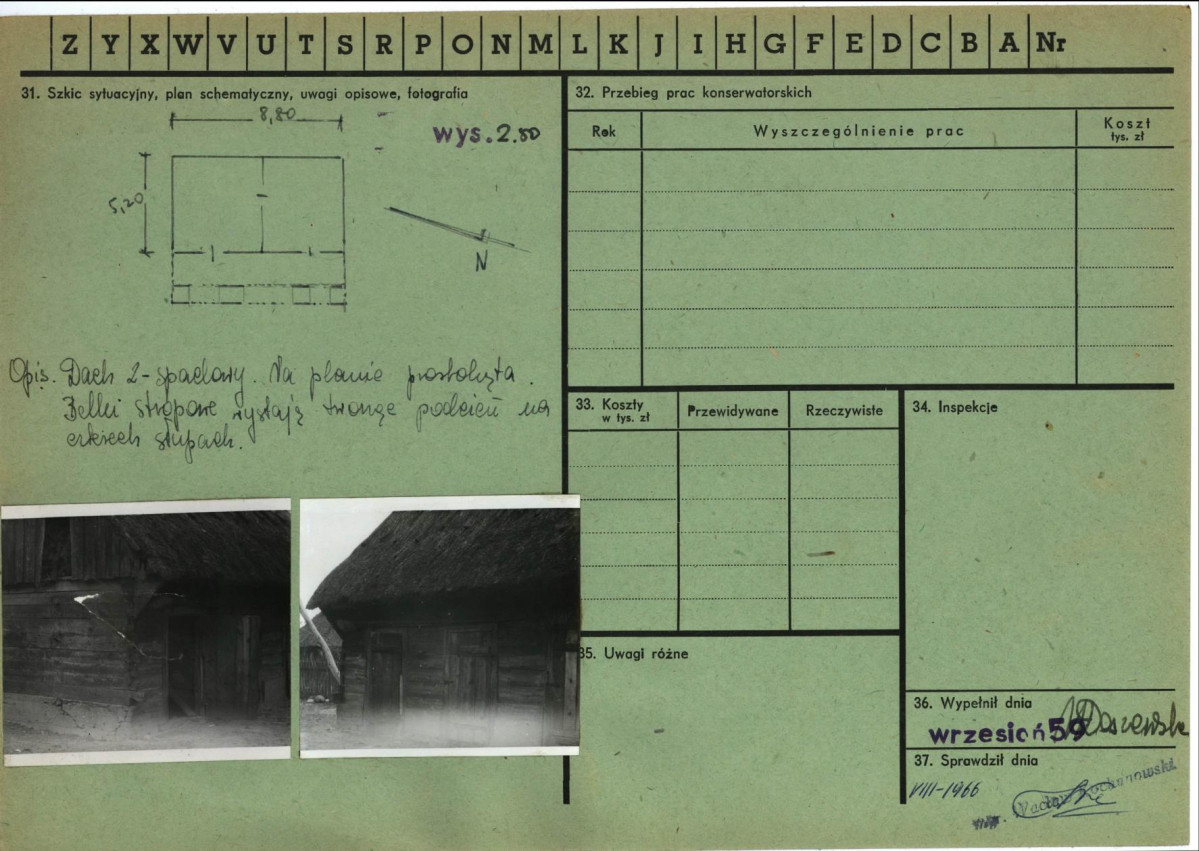 Z Y X W V U T S R P O N M L K J I H G F E D C B A Nr
31. Szkic sytuacyjny, plan schematyczny, uwagi opisowe, fotografia
8,80
wys. 2.50
5,20
N
Opis. Dach 2-spadowy. Na planie prostokąta.
Belki stropowe wystają tworząc podcień na
czterech słupach.
32. Przebieg prac konserwatorskich
Rok
Wyszczególnienie prac
Koszt
tys. zł
33. Koszty
w tys. zł
Przewidywane
Rzeczywiste
34. Inspekcje
35. Uwagi różne
36. Wypełnił dnia
wrzesień 59
37. Sprawdził dnia
VIII-1966
Wacław Kochanowski